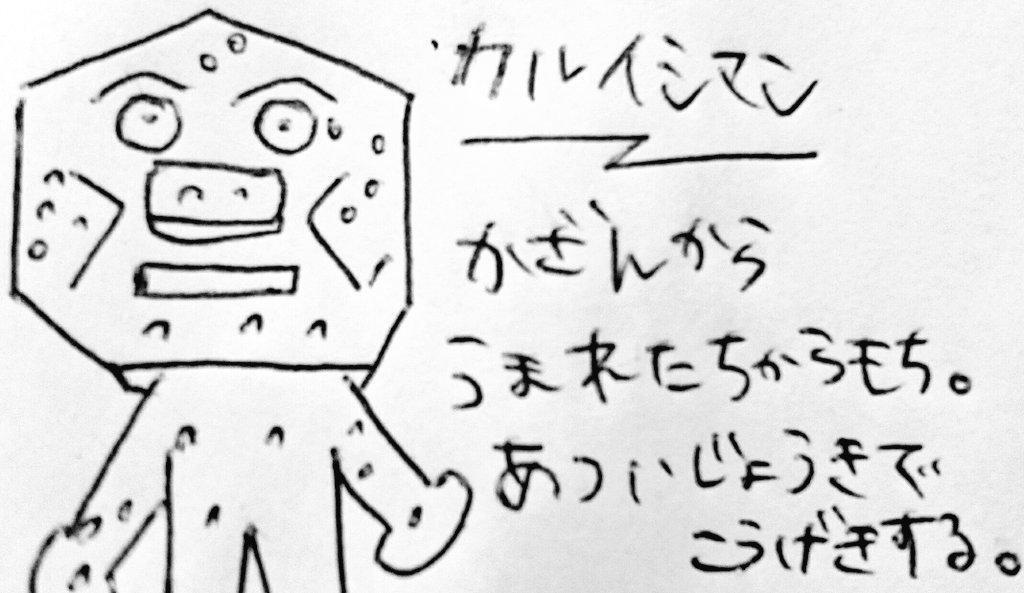 カルイシマン
かざんから
うまれたちからもち。
あついじょうきで
こうげきする。